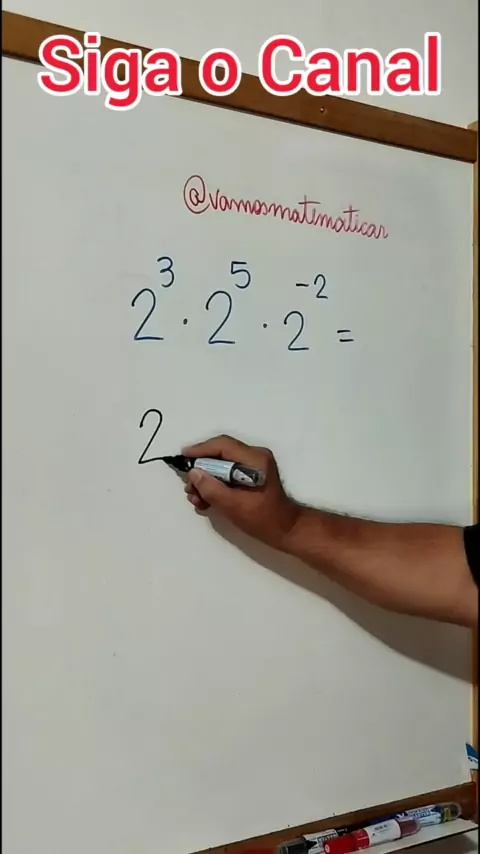 Siga o Canal
@vamosmatematicar
2³ · 2⁵ · 2⁻² =
2